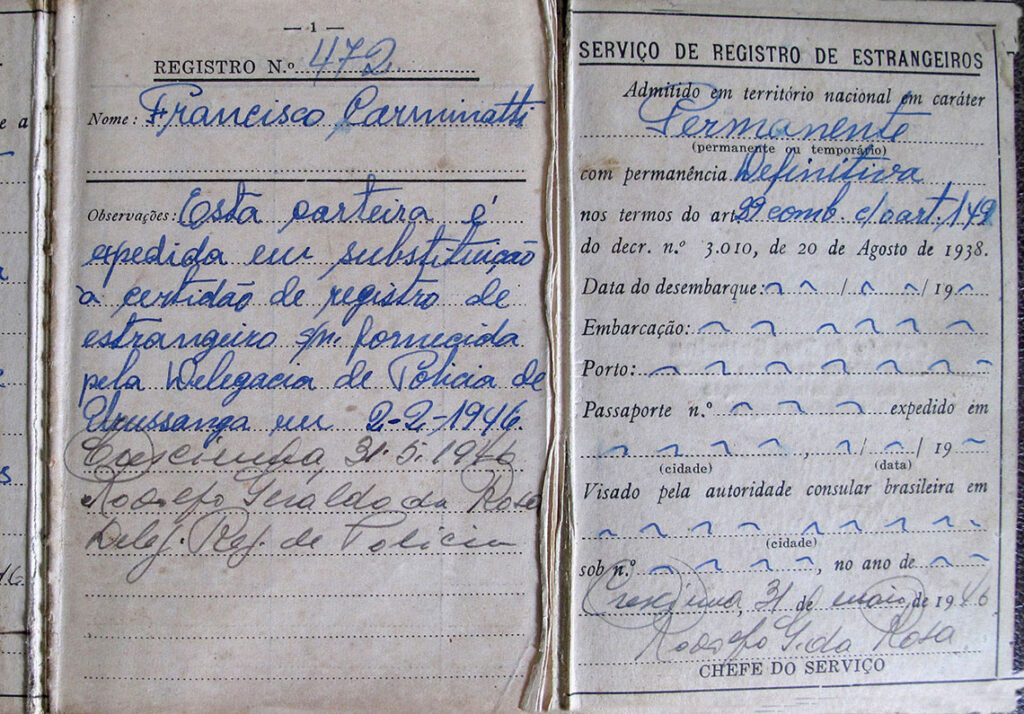 — 1 —
REGISTRO N.º 472
Nome: Francisco Carminatti
Observações: Esta carteira é
expedida em substituição
a certidão de registro de
estrangeiro s/n. fornecida
pela Delegacia de Policia de
Urussanga em 2-2-1946.
Cresciuma, 31.5.1946
Rodolfo Geraldo da Rosa
Deleg. Reg. de Policia
e a
SERVIÇO DE REGISTRO DE ESTRANGEIROS
Admitido em território nacional em caráter
Permanente
(permanente ou temporário)
com permanência Definitiva
nos termos do art. 29 comb. c/o art. 149
do decr. n.º 3.010, de 20 de Agosto de 1938.
Data do desembarque: / / 19
Embarcação:
Porto:
Passaporte n.º expedido em
, / / 19
(cidade) (data)
Visado pela autoridade consular brasileira em
(cidade)
sob n.º , no ano de
Cresciuma, 31 de maio de 1946
Rodolfo G. da Rosa
CHEFE DO SERVIÇO